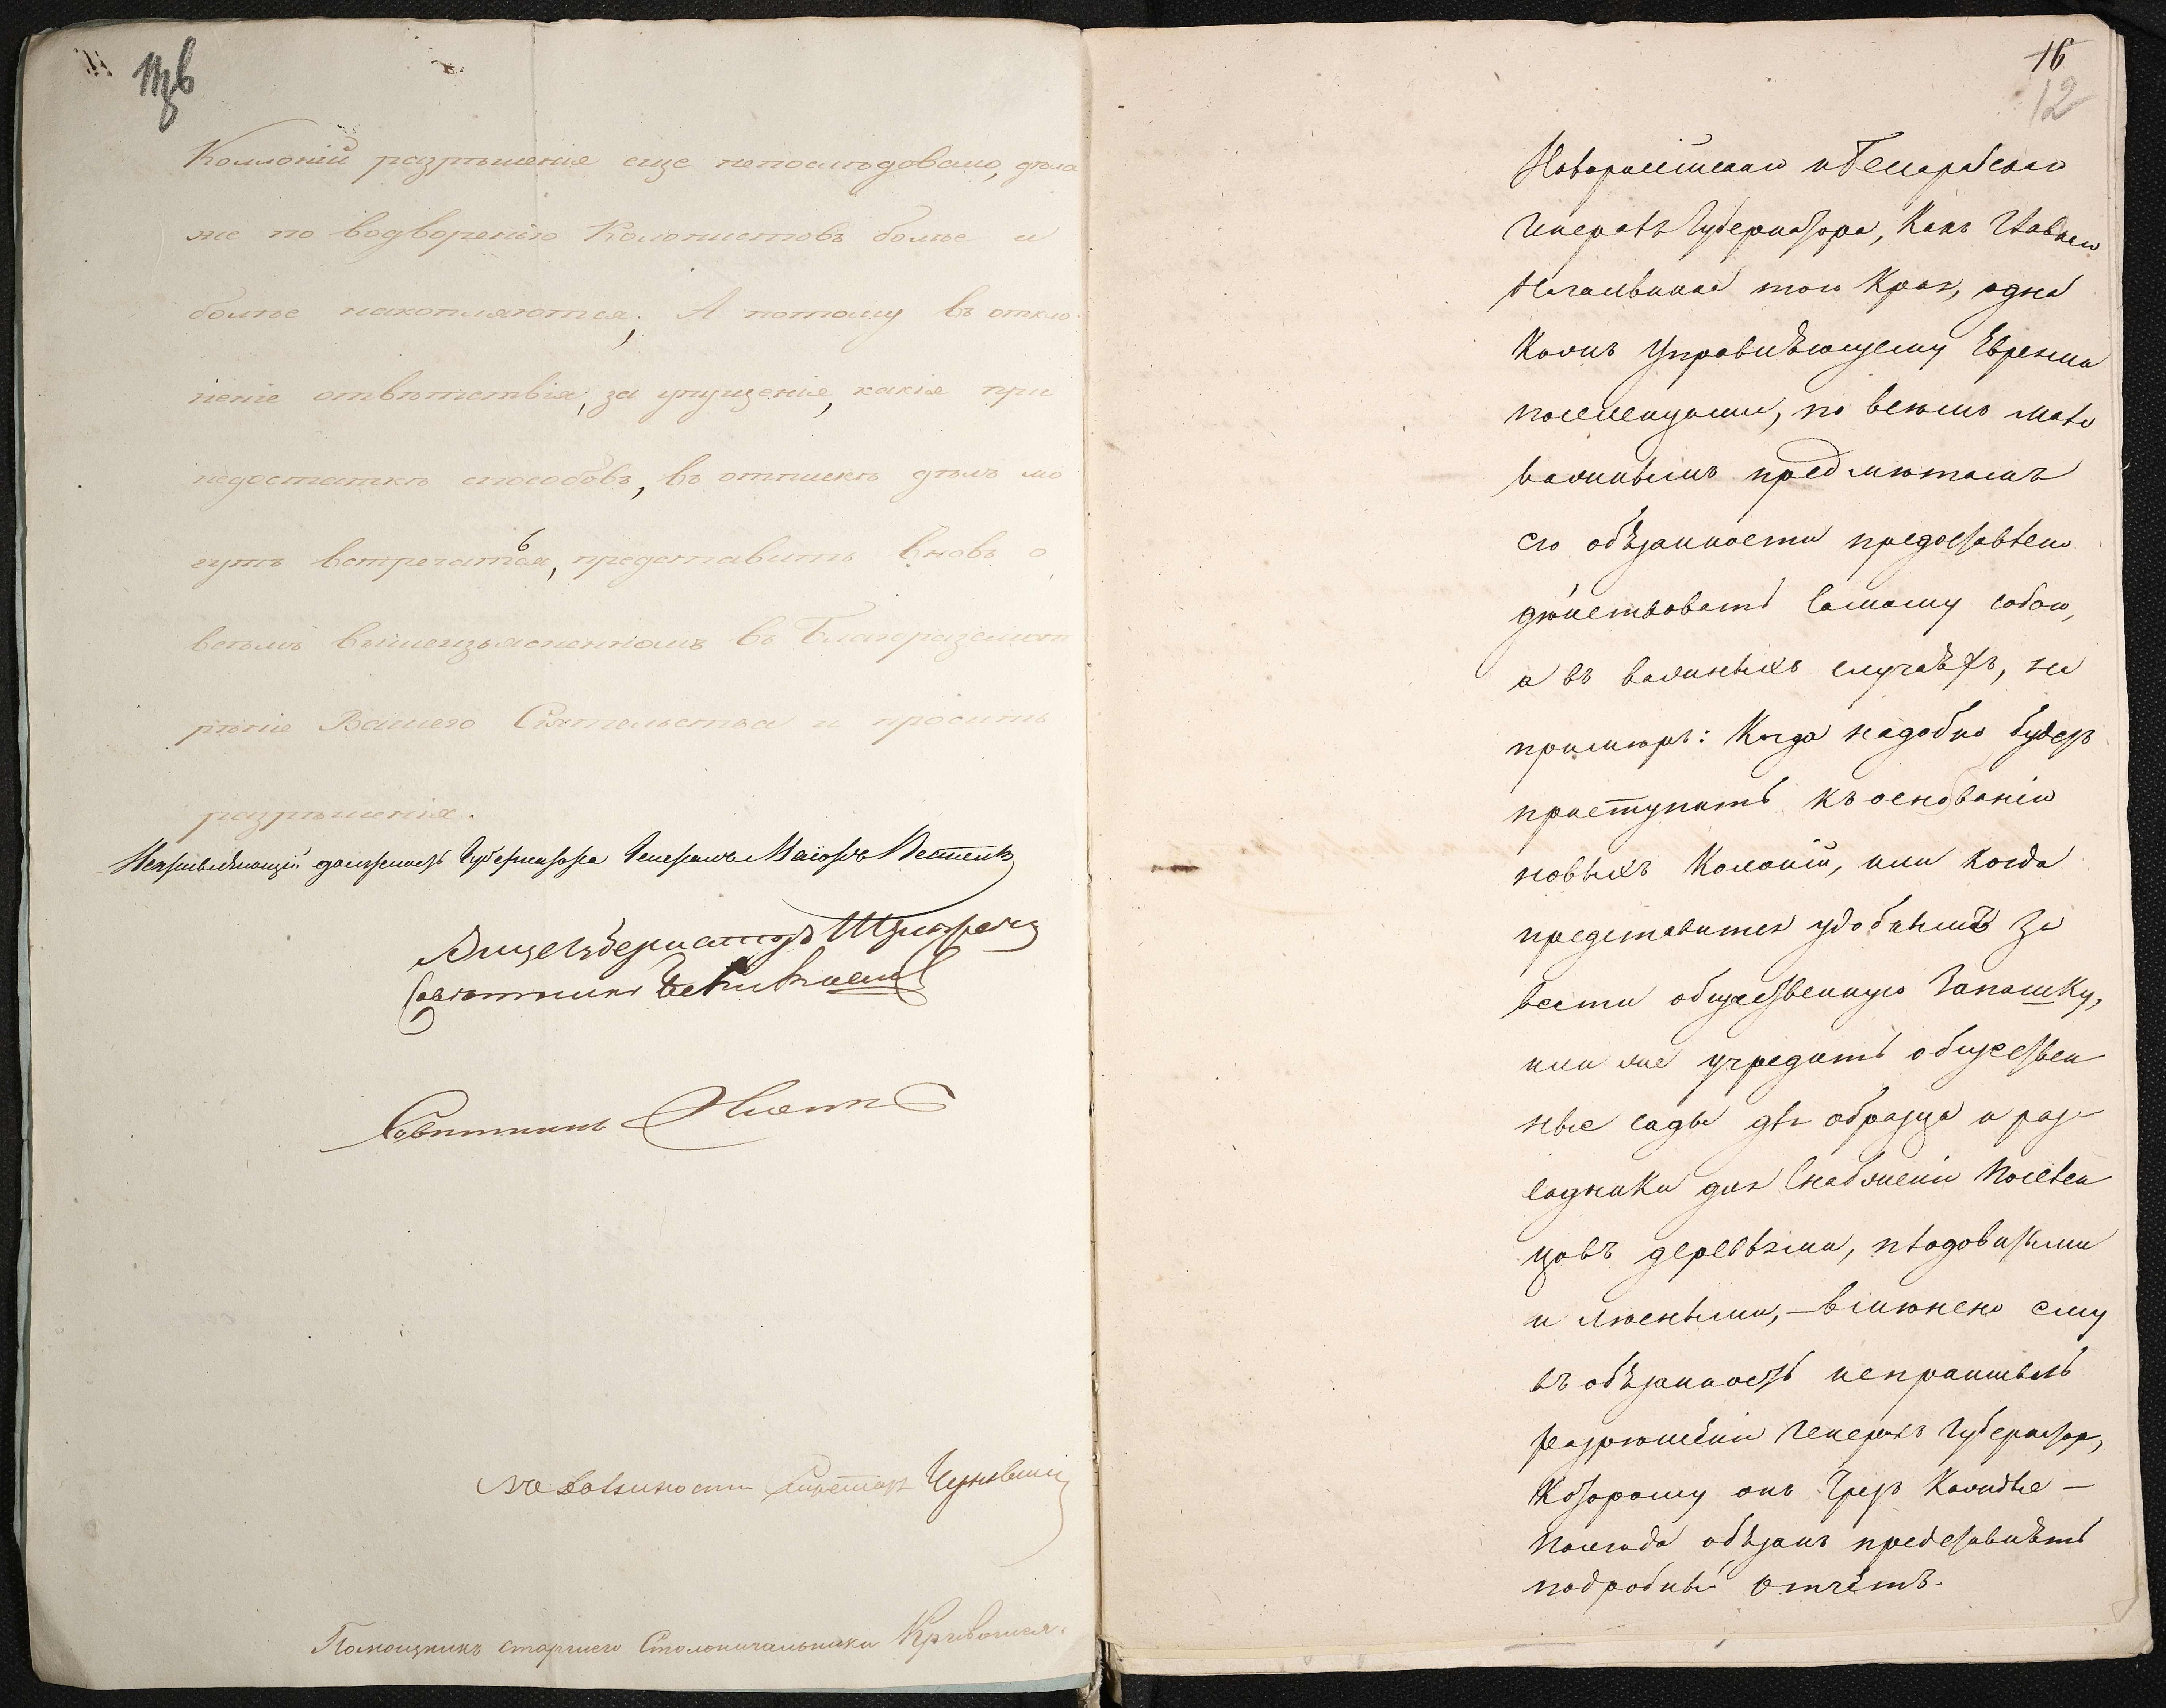 Коллоній разрѣшенія еще непослѣдовало, дѣла
же по водворенію Колонистовъ болѣе и
болѣе накопляются; А потому въ откло
неніе отвѣтствія, за упущенія, какія при
недостаткѣ способовъ, въ отпискѣ дѣлъ мо
гутъ встречатся, представить вновь о
всѣмъ вышеизъясненномъ въ Благоразсмот
рѣніе Вашего Сіятельства и просить
разрѣшенія.
Исправляющій должность Губернатора Генералъ Маіоръ
Вице Губернаторъ
Совѣтникъ
Совѣтникъ
Въ должности Секретаря
Помощникъ старшего Столоначальника
16
12
Новороссійскаго и Бессарабскаго
Генералъ Губернатора, Какъ Главнаго
Начальника того Края, одна
кожъ Управляющему Еврейми
поселенцами, по всѣмъ мало
важнымъ предмѣтамъ
его обязанности предоставлено
дѣйствовать самому собою,
а въ важныхъ случаяхъ, на
примѣръ: Когда надобно будетъ
приступить къ основанію
новыхъ Колоній, или когда
представится удобнымъ за
вести общественную Запашку,
или же учредить обществен
ные сады для образца и раз
садники для снабженія Поселен
цовъ деревьями, плодовитыми
и лѣсными, – вмѣнено ему
въ обязанность испрашивать
разрѣшенія Генералъ Губернатора,
Которому онъ Чрезъ Каждые –
Полгода обязанъ представлять
подробный отчётъ.